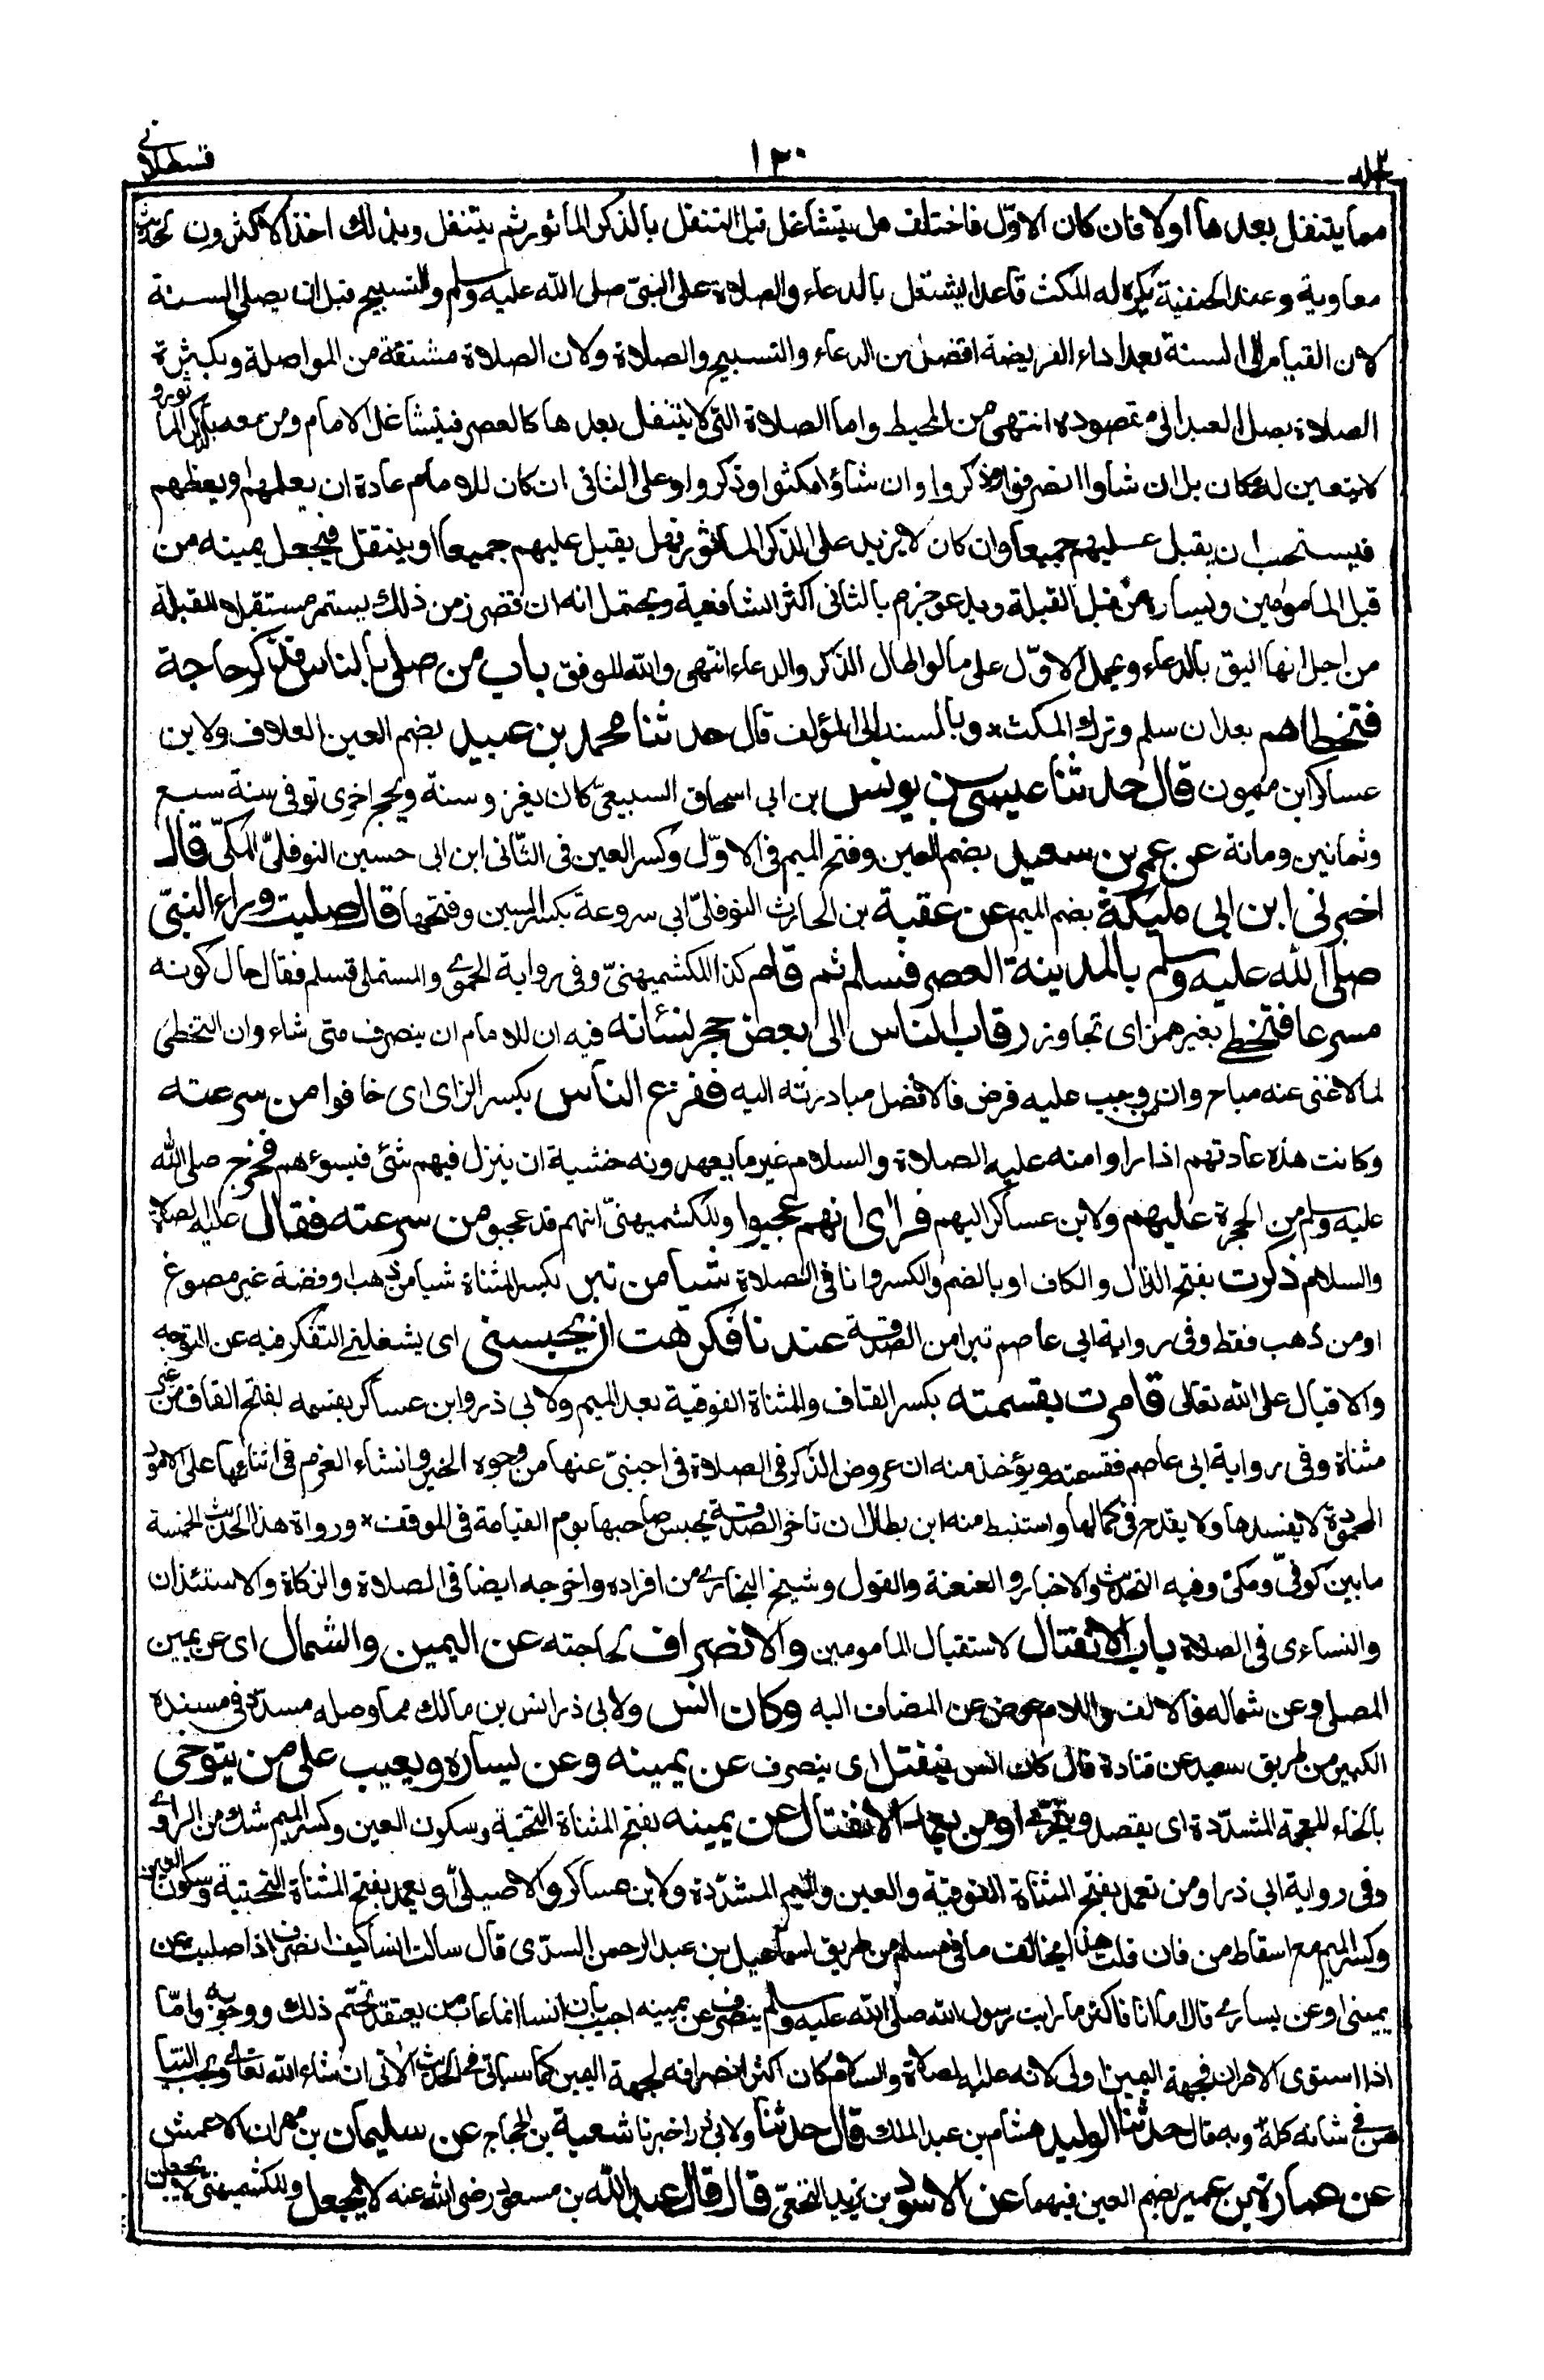 قسطلانی
١٣٠
مما يتنفل بعدها اولا فان كان الاوّل فاختلف هل يتشاغل قبل التنفل بالذكر الماثور ثم يتنفل وبذلك اخذ الاكثرون لحديث
معاوية وعند الحنفية يكره له المكث قاعدا يشتغل بالدعاء والصلاة على النبيّ صلى الله عليه وسلم والتسبيح قبل ان يصلى السنة
لان القيام الى السنة بعد اداء الفريضة افضل من الدعاء والتسبيح والصلاة ولان الصلاة مشتقة من المواصلة وبكثرة
الصلاة يصل العبد الى مقصوده انتهى من المحيط واما الصلاة التى لا يتنفل بعدها كالعصر فيتشاغل الامام ومن معه بالذكر الماثور و
لا يتعين له مكان بل ان شاوا انصرفوا وذكروا وان شاؤا مكثوا وذكروا وعلى الثانى ان كان للامام عادة ان يعلمهم او يعظهم
فيستحب ان يقبل عليهم جميعا وان كان لا يزيد على الذكر الماثور فهل يقبل عليهم جميعا او ينفتل فيجعل يمينه من
قبل المامومين ويساره من قبل القبلة ويدعو جزم بالثانى اكثر الشافعية ويحتمل انه ان قصر زمن ذلك يستمر مستقبلا للقبلة
من اجل انها اليق بالدعاء ويحمل الاوّل على ما لو اطال الذكر والدعاء انتهى والله الموفق باب من صلى بالناس فذكر حاجة
فتخطاهم بعد ان سلم وترك المكث * وبالسند الى المؤلف قال حدثنا محمد بن عبيد بضم العين العلاف ولابن
عساكر ابن ميمون قال حدثنا عيسى بن يونس بن ابى اسحاق السبيعىّ كان يغزو سنة ويحج اخرى توفى سنة سبع
وثمانين ومائة عن عمر بن سعيد بضم العين وفتح الميم فى الاوّل وكسر العين فى الثّانى ابن ابى حسين النوفلىّ المكىّ قال
اخبرنى ابن ابى مليكة بضم الميم عن عقبة بن الحارث النوفلىّ ابى سروعة بكسر السين وفتحها قال صليت وراء النبيّ
صلى الله عليه وسلم بالمدينة العصر فسلم ثم قام كذا للكشميهنىّ وفى رواية الحموى والمستملى فسلم فقام حال كونه
مسرعا فتخطى بغير همز اى تجاوز رقاب الناس الى بعض حجر نسائه فيه ان للامام ان ينصرف متى شاء وان التخطى
لما لا غنى عنه مباح وان من وجب عليه فرض فالافضل مبادرته اليه ففزع الناس بكسر الزاى اى خافوا من سرعته
وكانت هذه عادتهم اذا راوا منه عليه الصلاة والسلام غير ما يعهدونه خشية ان ينزل فيهم شئ فيسوءهم فخرج صلى الله
عليه وسلم من الحجرة عليهم ولابن عساكر اليهم فراى انهم عجبوا وللكشميهنىّ انهم قد عجبوا من سرعته فقال عليه الصلاة
والسلام ذكرت بفتح الذال والكاف او بالضم والكسر وانا فى الصلاة شيا من تبر بكسر المثناة شيا من ذهب او فضة غير مصوغ
او من ذهب فقط وفى رواية ابى عاصم تبرا من الصدقة عندنا فكرهت ان يحبسنى اى يشغلنى التفكر فيه عن التوجه
والاقبال على الله تعالى فامرت بقسمته بكسر القاف والمثناة الفوقية بعد الميم ولابى ذر وابن عساكر بقسمه بفتح القاف من غير
مثناة وفى رواية ابى عاصم فقسمته ويؤخذ منه ان عروض الذكر فى الصلاة فى اجنبىّ عنها من وجوه الخير وانشاء العزم فى اثنائها على الامور
المحمودة لا يفسدها ولا يقدح فى كمالها واستنبط منه ابن بطال ان تاخير الصدقة يحبس صاحبها يوم القيامة فى الموقف * ورواة هذا الحديث الخمسة
ما بين كوفىّ ومكىّ وفيه التحديث والاخبار والعنعنة والقول وشيخ البخارى من افراده واخرجه ايضا فى الصلاة والزكاة والاستئذان
والنساءى فى الصلاة باب الانفتال لاستقبال المامومين والانصراف لحاجته عن اليمين والشمال اى عن يمين
المصلى وعن شماله فالالف واللام عوض عن المضاف اليه وكان انس ولابى ذر انس بن مالك مما وصله مسدّد فى مسنده
الكبير من طريق سعيد عن قتادة قال كان انس ينفتل اى ينصرف عن يمينه وعن يساره ويعيب على من يتوخى
بالخاء المعجمة المشدّدة اى يقصد ويتحرى او من يعمد الانفتال عن يمينه بفتح المثناة التحتية وسكون العين وكسر الميم شك من الراوى
وفى رواية ابى ذر او من تعمد بفتح المثناة الفوقية والعين والميم المشدّدة ولابن عساكر والاصيلىّ او يعمد بفتح المثناة التحتية وسكون العين
وكسر الميم مع اسقاط من فان قلت هذا يخالف ما فى مسلم من طريق اسماعيل بن عبد الرحمن السدّى قال سالت انسا كيف انصرف اذا صليت عن
يمينى او عن يسارى قال اما انا فاكثر ما رايت رسول الله صلى الله عليه وسلم ينصرف عن يمينه اجيب بان انسا انما عاب من يعتقد تحتّم ذلك ووجوبه وامّا
اذا استوى الامران فجهة اليمين اولى لانه عليه الصلاة والسلام كان اكثر انصرافه لجهة اليمين كما سياتى فى الحديث الآتى ان شاء الله تعالى ويحب التيا
من فى شانه كله وبه قال حدثنا الوليد هشام بن عبد الملك قال حدثنا ولابى ذر اخبرنا شعبة بن الحجاج عن سليمان بن مهران الاعمش
عن عمارة بن عمير بضم العين فيهما عن الاسود بن يزيد النخعىّ قال قال عبد الله بن مسعود رضى الله عنه لا يجعل وللكشميهنى لا يجعلن